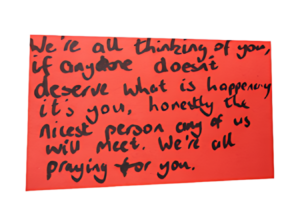 We're all thinking of you,
if anyone doesn't
deserve what is happening
it's you, honestly the
nicest person any of us
will meet. We're all
praying for you.